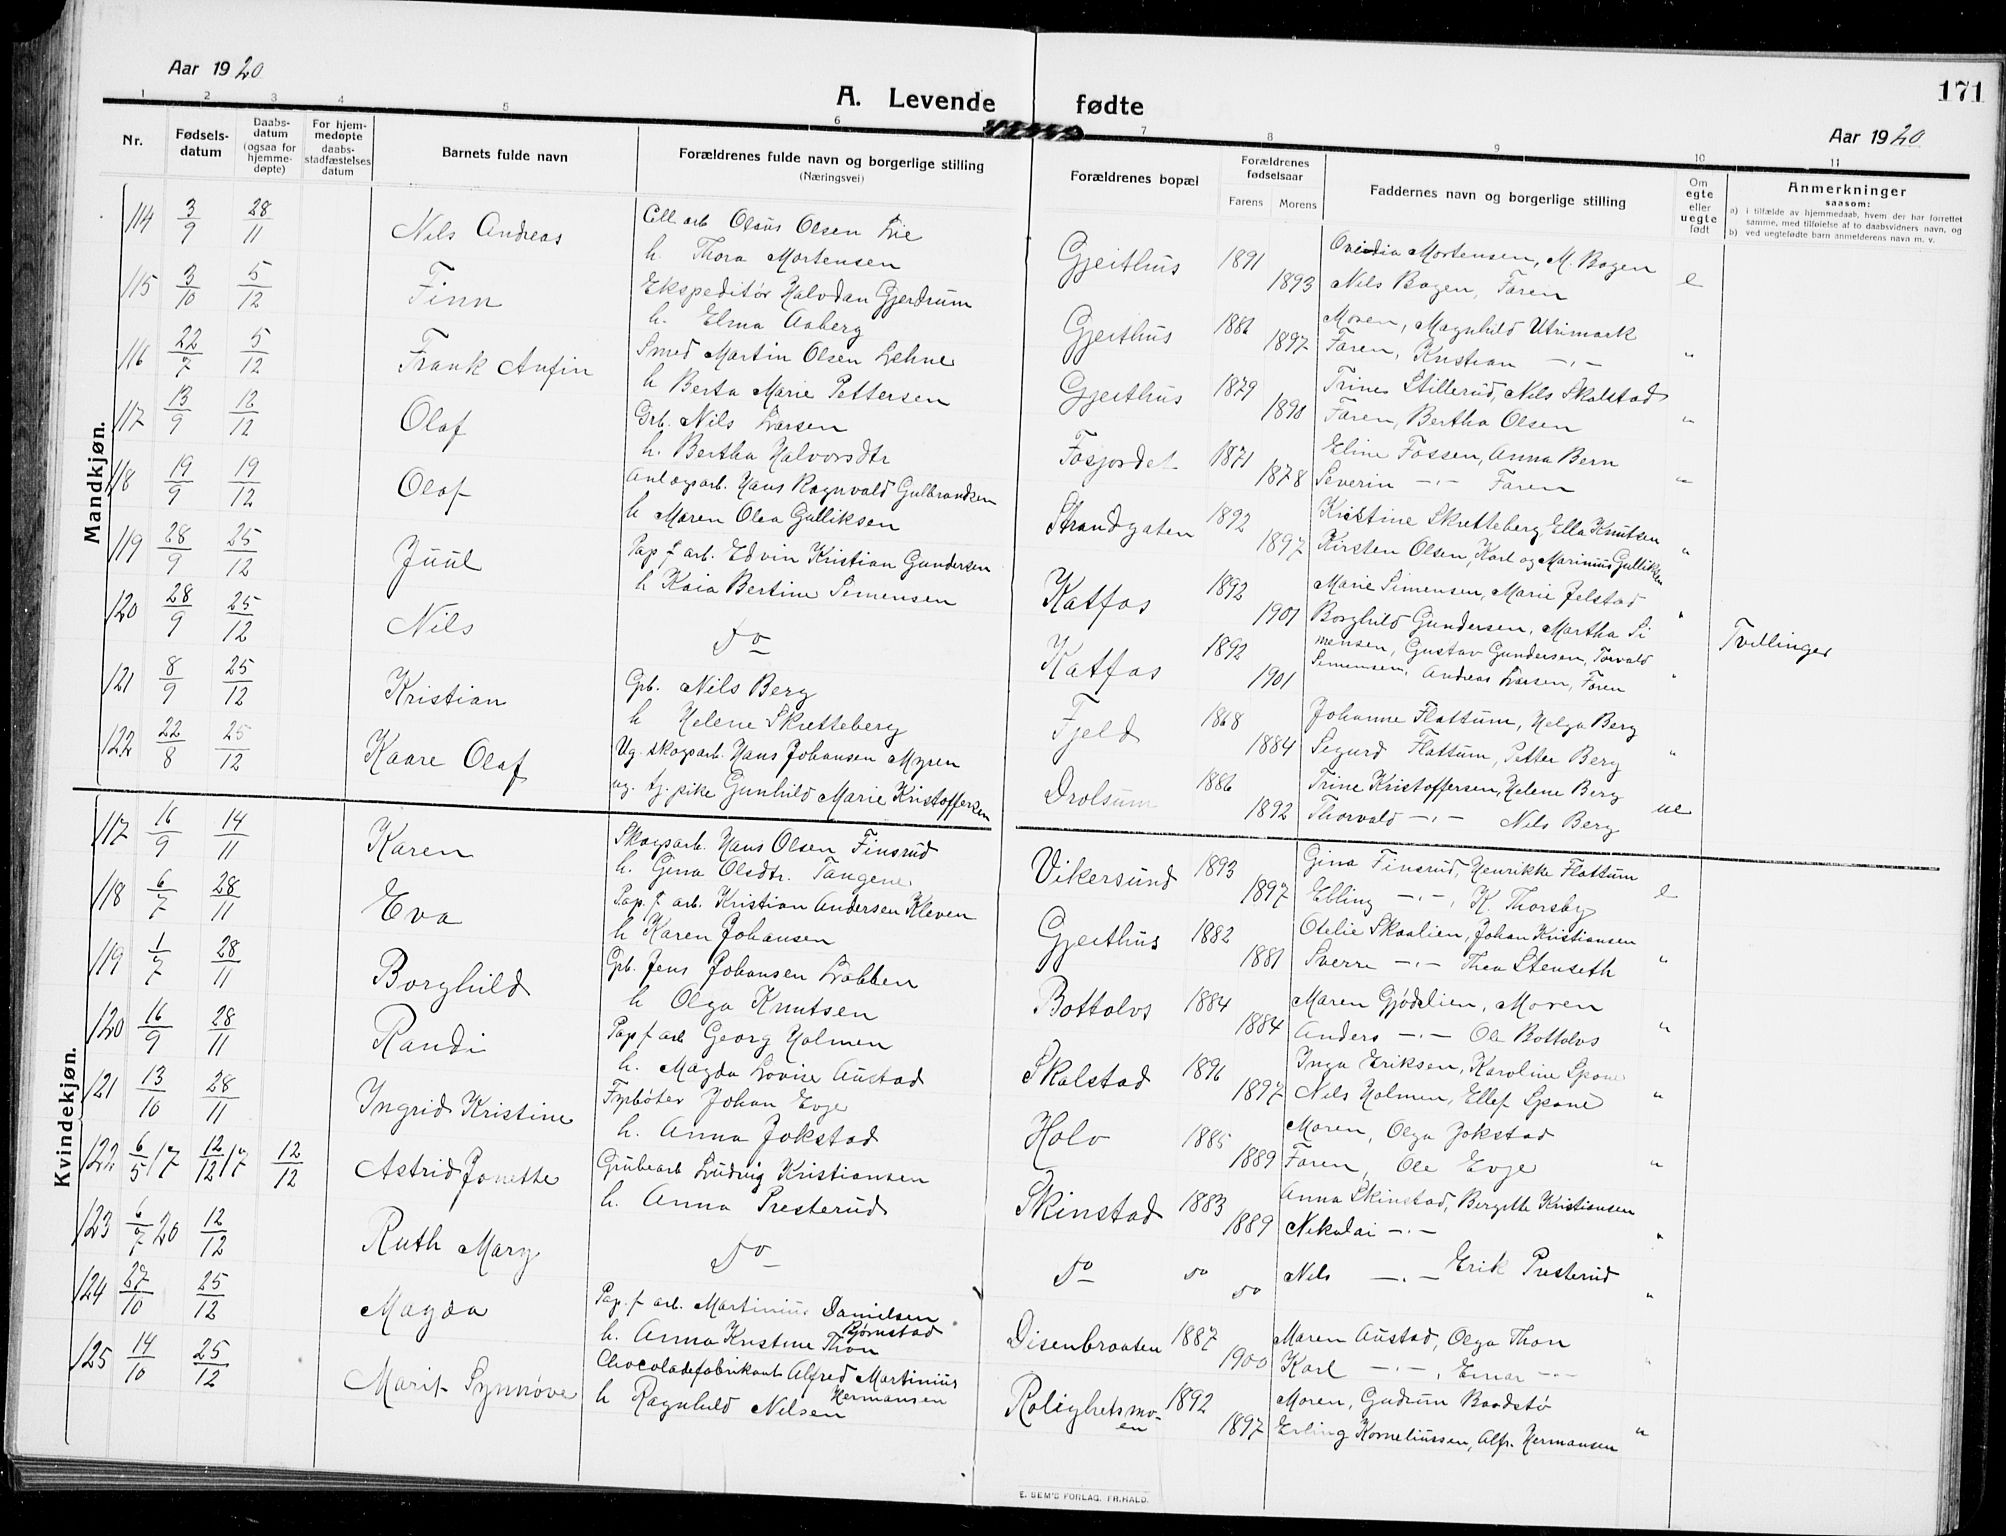 Aar 1920
A. Levende fødte
171
Aar 1920
1 2 3 4 5 6 7 8 9 10 11
Nr.
Fødsels-
datum
Daabs-
datum
(ogsaa for
hjemme-
døpte)
For hjem-
medøpte
daabs-
stadfæstelses
datum
Barnets fulde navn
Forældrenes fulde navn og borgerlige stilling
(Næringsvei)
Forældrenes bopæl
Forældrenes
fødselsaar
Farens Morens
Faddernes navn og borgerlige stilling
Om
egte
eller
uegte
født
Anmerkninger
saasom:
a) i tilfælde av hjemmedaab, hvem der har forrettet
samme, med tilføielse af to daabsvidners navn, og
b) ved uegtefødte barn anmelderens navn m. v.
Mandkjøn.
114 3/9 28/11 Nils Andreas Cell arb Olaus Olsen Lie Gjeithus 1891 Ovidia Mortensen, M. Bagen e
h. Thora Mortensen 1893 Nils Bagen, Faren
115 3/10 5/12 Finn Ekspeditør Halvdan Gjerdrum Gjeithus 1886 Moren, Magnhild Utrimark
h. Elma Aaberg 1897 Faren, Kristian -"- "
116 22/7 5/12 Frank Anfin Smed Martin Olsen Lehne Gjeithus 1879 Trine Stillerud, Nils Skalstad
h Berta Marie Pettersen 1890 Faren, Bertha Olsen "
117 13/9 12/12 Olaf Grb. Nils Larsen Fosjordet 1871 Eline Fossen, Anna Bern
h. Bertha Halvorsdtr 1878 Severin -"- Faren "
118 19/9 19/12 Olaf Anlægsarb. Hans Ragnvald Gulbrandsen Strandgaten 1892 Kristine Skretteberg, Ella Knutsen
h Maren Olea Gulliksen 1897 Kirsten Olsen, Karl og Marinius Gulliksen "
119 28/9 25/12 Juul Pap. f. arb. Edvin Kristian Gundersen Katfos 1892 Marie Simensen, Marie Jelstad
h Kaia Bertine Simensen 1901 Borghild Gundersen, Martha Si "
120 28/9 25/12 Nils Do Katfos 1892 mensen, Gustav Gundersen, Torvald Tvillinger
1901 Simensen, Andreas Larsen, Faren "
121 8/9 25/12 Kristian Gpb. Nils Berg Fjeld 1868 Johanne Flattum, Helga Berg
h Helene Skretteberg 1884 Sigurd Flattum, Petter Berg "
122 22/8 25/12 Kaare Olaf Ug. skogsarb. Hans Johansen Myren Drolsum 1886 Trine Kristoffersen, Helene Berg
ug. tj. pike Gunhild Marie Kristoffersen 1892 Thorvald -"- Nils Berg ue
Kvindekjøn.
117 16/9 14/11 Karen Skogsarb. Hans Olsen Finsrud Vikersund 1893 Gina Finsrud, Henrikke Flattum
h. Gina Olsdtr. Tangene 1897 Elling -"-, K. Thorsby e
118 6/7 28/11 Eva Pap. f. arb. Kristian Andersen Kleven Gjeithus 1882 Otelie Skaalien, Johan Kristiansen
h Karen Johansen 1881 Sverre -"- Thea Stenseth "
119 1/7 28/11 Borghild Gpb. Jens Johansen Løbben Bottolvs 1884 Maren Gjødelien, Moren
h Olga Knutsen 1884 Anders -"- Ole Bottolvs "
120 16/9 28/11 Randi Pap. f. arb Georg Holmen Skalstad 1896 Inga Eriksen, Karoline Spone
h. Magda Lovise Austad 1897 Nils Holmen, Ellef Spone "
121 13/10 28/11 Ingrid Kristine Fyrbøter Johan Evje Holo 1885 Moren, Olga Jokstad
h. Anna Jokstad 1889 Faren, Ole Evje "
122 6/5 17 12/12 17 12/12 Astrid Jonette Grubearb Ludvig Kristiansen Skinstad 1883 Anna Skinstad, Bergitte Kristiansen
h. Anna Presterud 1889 Nikolai -"- "
123 6/7 20 12/12 Ruth Mary Do Do do Nils -"- Erik Presterud
do "
124 27/10 25/12 Magda Pap. f. arb. Martinius Danielsen Bjørnstad Disenbraaten 1887 Maren Austad, Olga Thon
h. Anna Kristine Thon 1900 Karl -"-, Einar -"- "
125 14/10 25/12 Marit Synnøve Chocoladefabrikant Alfred Martinius Hermansen Rolighetsmo- 1892 Moren, Gudrun Baadstø
h Ragnhild Nilsen en 1897 Erling Korneliussen, Alfr. Hermansen "
E. SEM'S FORLAG. FR.HALD.